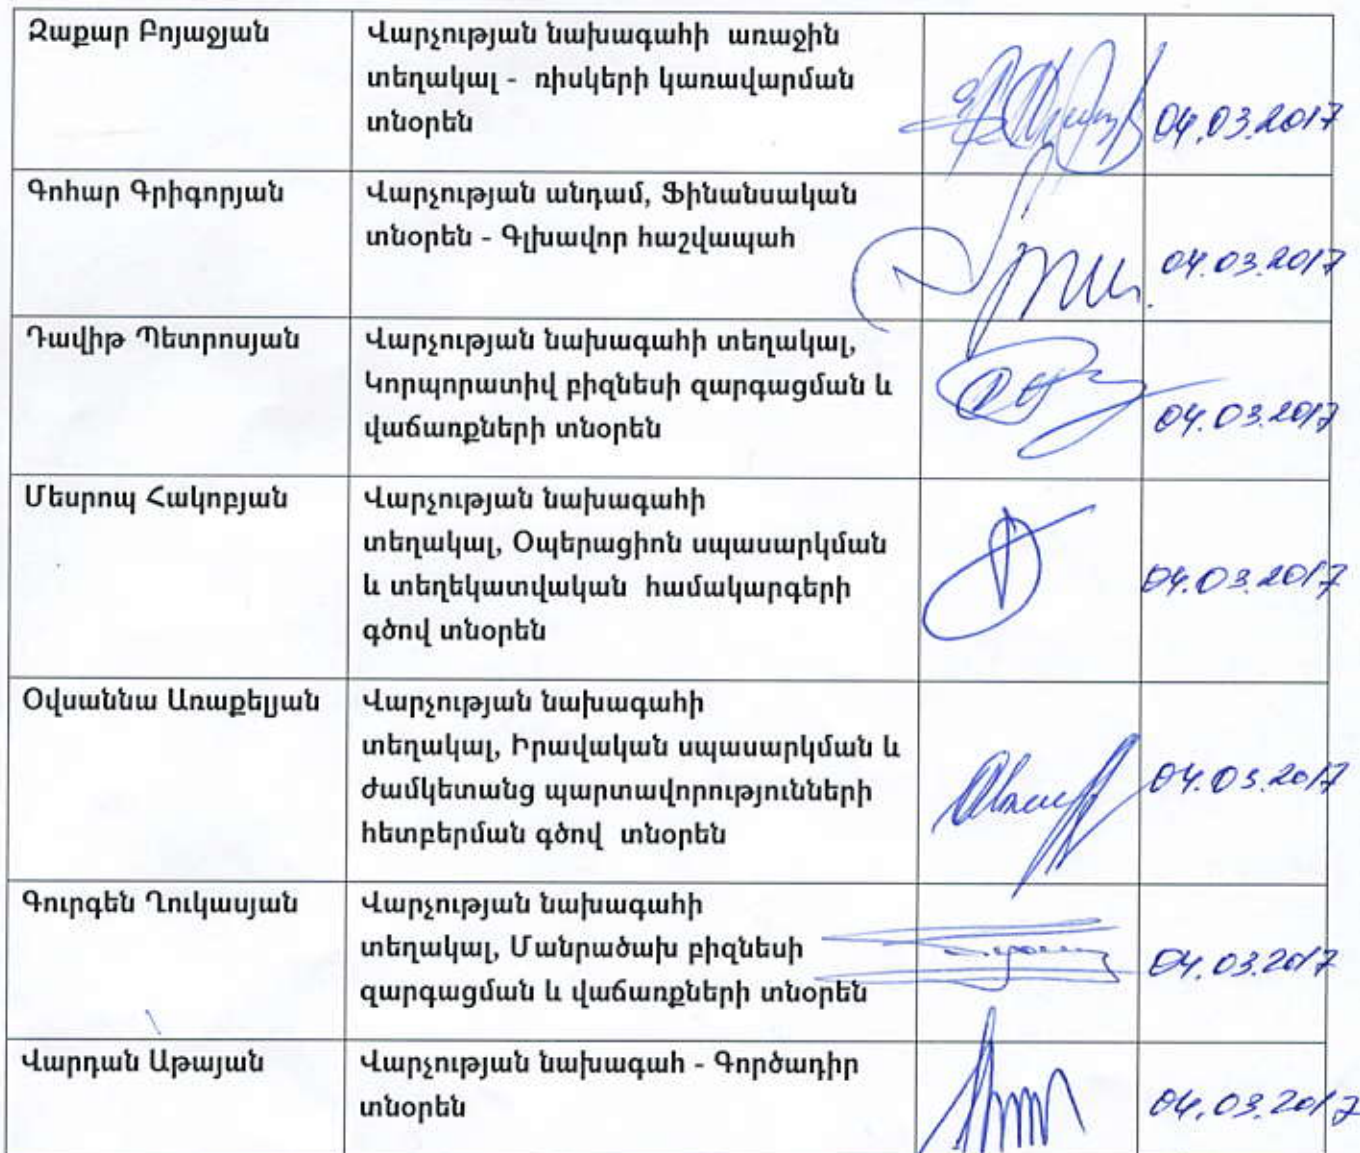 Զաքար Բոյաջյան
Վարչության նախագահի առաջին
տեղակալ - ռիսկերի կառավարման
տնօրեն
04.03.2017
Գոհար Գրիգորյան
Վարչության անդամ, Ֆինանսական
տնօրեն - Գլխավոր հաշվապահ
04.03.2017
Դավիթ Պետրոսյան
Վարչության նախագահի տեղակալ,
Կորպորատիվ բիզնեսի զարգացման և
վաճառքների տնօրեն
04.03.2017
Մեսրոպ Հակոբյան
Վարչության նախագահի
տեղակալ, Օպերացիոն սպասարկման
և տեղեկատվական համակարգերի
գծով տնօրեն
04.03.2017
Օվսաննա Առաքելյան
Վարչության նախագահի
տեղակալ, Իրավական սպասարկման և
ժամկետանց պարտավորությունների
հետբերման գծով տնօրեն
04.03.2017
Գուրգեն Ղուկասյան
Վարչության նախագահի
տեղակալ, Մանրածախ բիզնեսի
զարգացման և վաճառքների տնօրեն
04.03.2017
Վարդան Աթայան
Վարչության նախագահ - Գործադիր
տնօրեն
04.03.2017